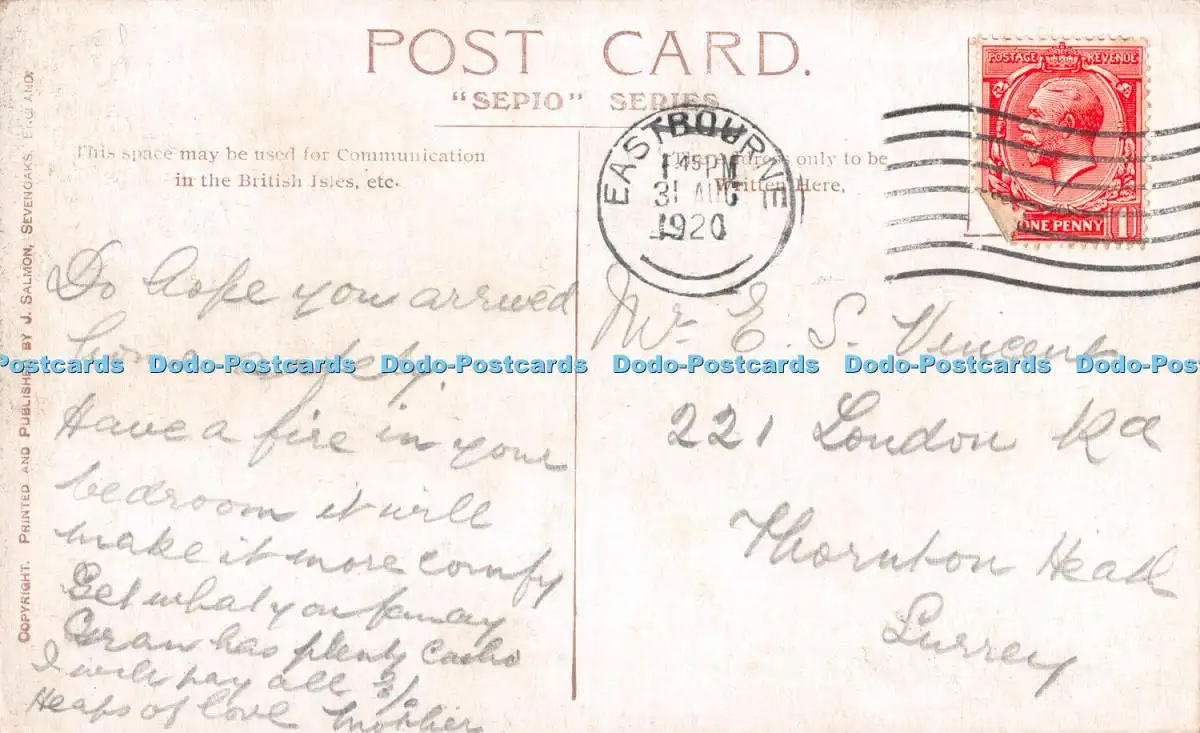 POST CARD.
"SEPIO" SERIES
This space may be used for Communication
in the British Isles, etc.
only to be
Written Here,
EASTBOURNE
1 45 PM
31 AUG
1920
POSTAGE REVENUE
ONE PENNY 1
COPYRIGHT. PRINTED AND PUBLISHED BY J. SALMON, SEVENOAKS, ENGLAND.
Do hope you arrived
home safely.
Have a fire in your
bedroom it will
make it more comfy
Get what you fancy
Gran has plenty Cash
I will pay all
Heaps of love Mother
Mr E. S. Vincent
221 London Rd
Thornton Heath
Surrey
Dodo-Postcards Dodo-Postcards Dodo-Postcards Dodo-Postcards Dodo-Postcards Dodo-Postcards